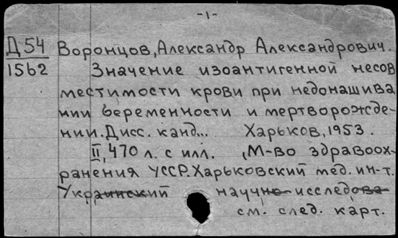 -1-
Д 54 Воронцов, Александр Александрович.
1562 Значение изоантигенной несов
местимости крови при недонашива
нии беременности и мертворожде-
нии. Дисс. канд... Харьков, 1953.
II, 470 л. с илл. (М-во здравоох-
ранения УССР. Харьковский мед. ин-т.
Украинский научно-исследова-
см. след. карт.